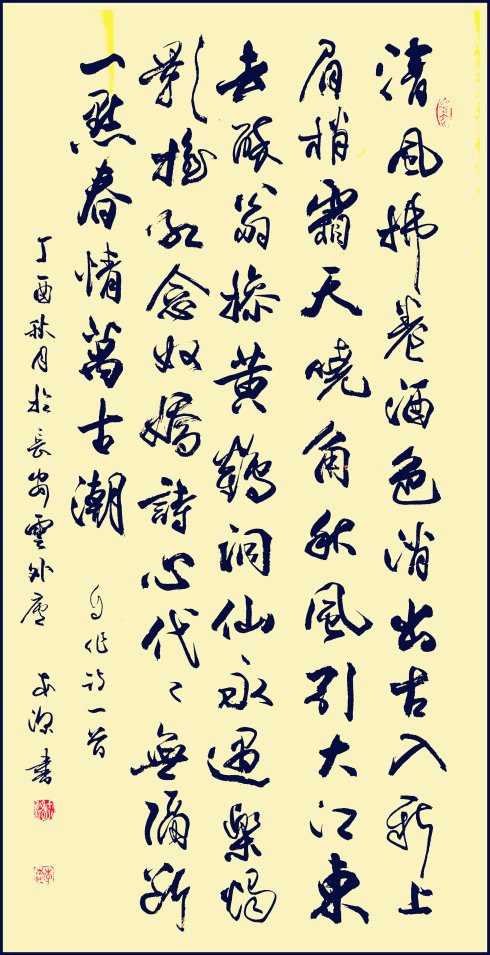 清風拂卷酒色消出古入新上
眉梢霜天曉角秋風引大江東
去醉翁操黄鶴洞仙永遇樂燭
影搖紅念奴嬌詩心代〻無隔斷
一點春情萬古潮
自作詩一首
丁酉秋月於長安雲外廬
書